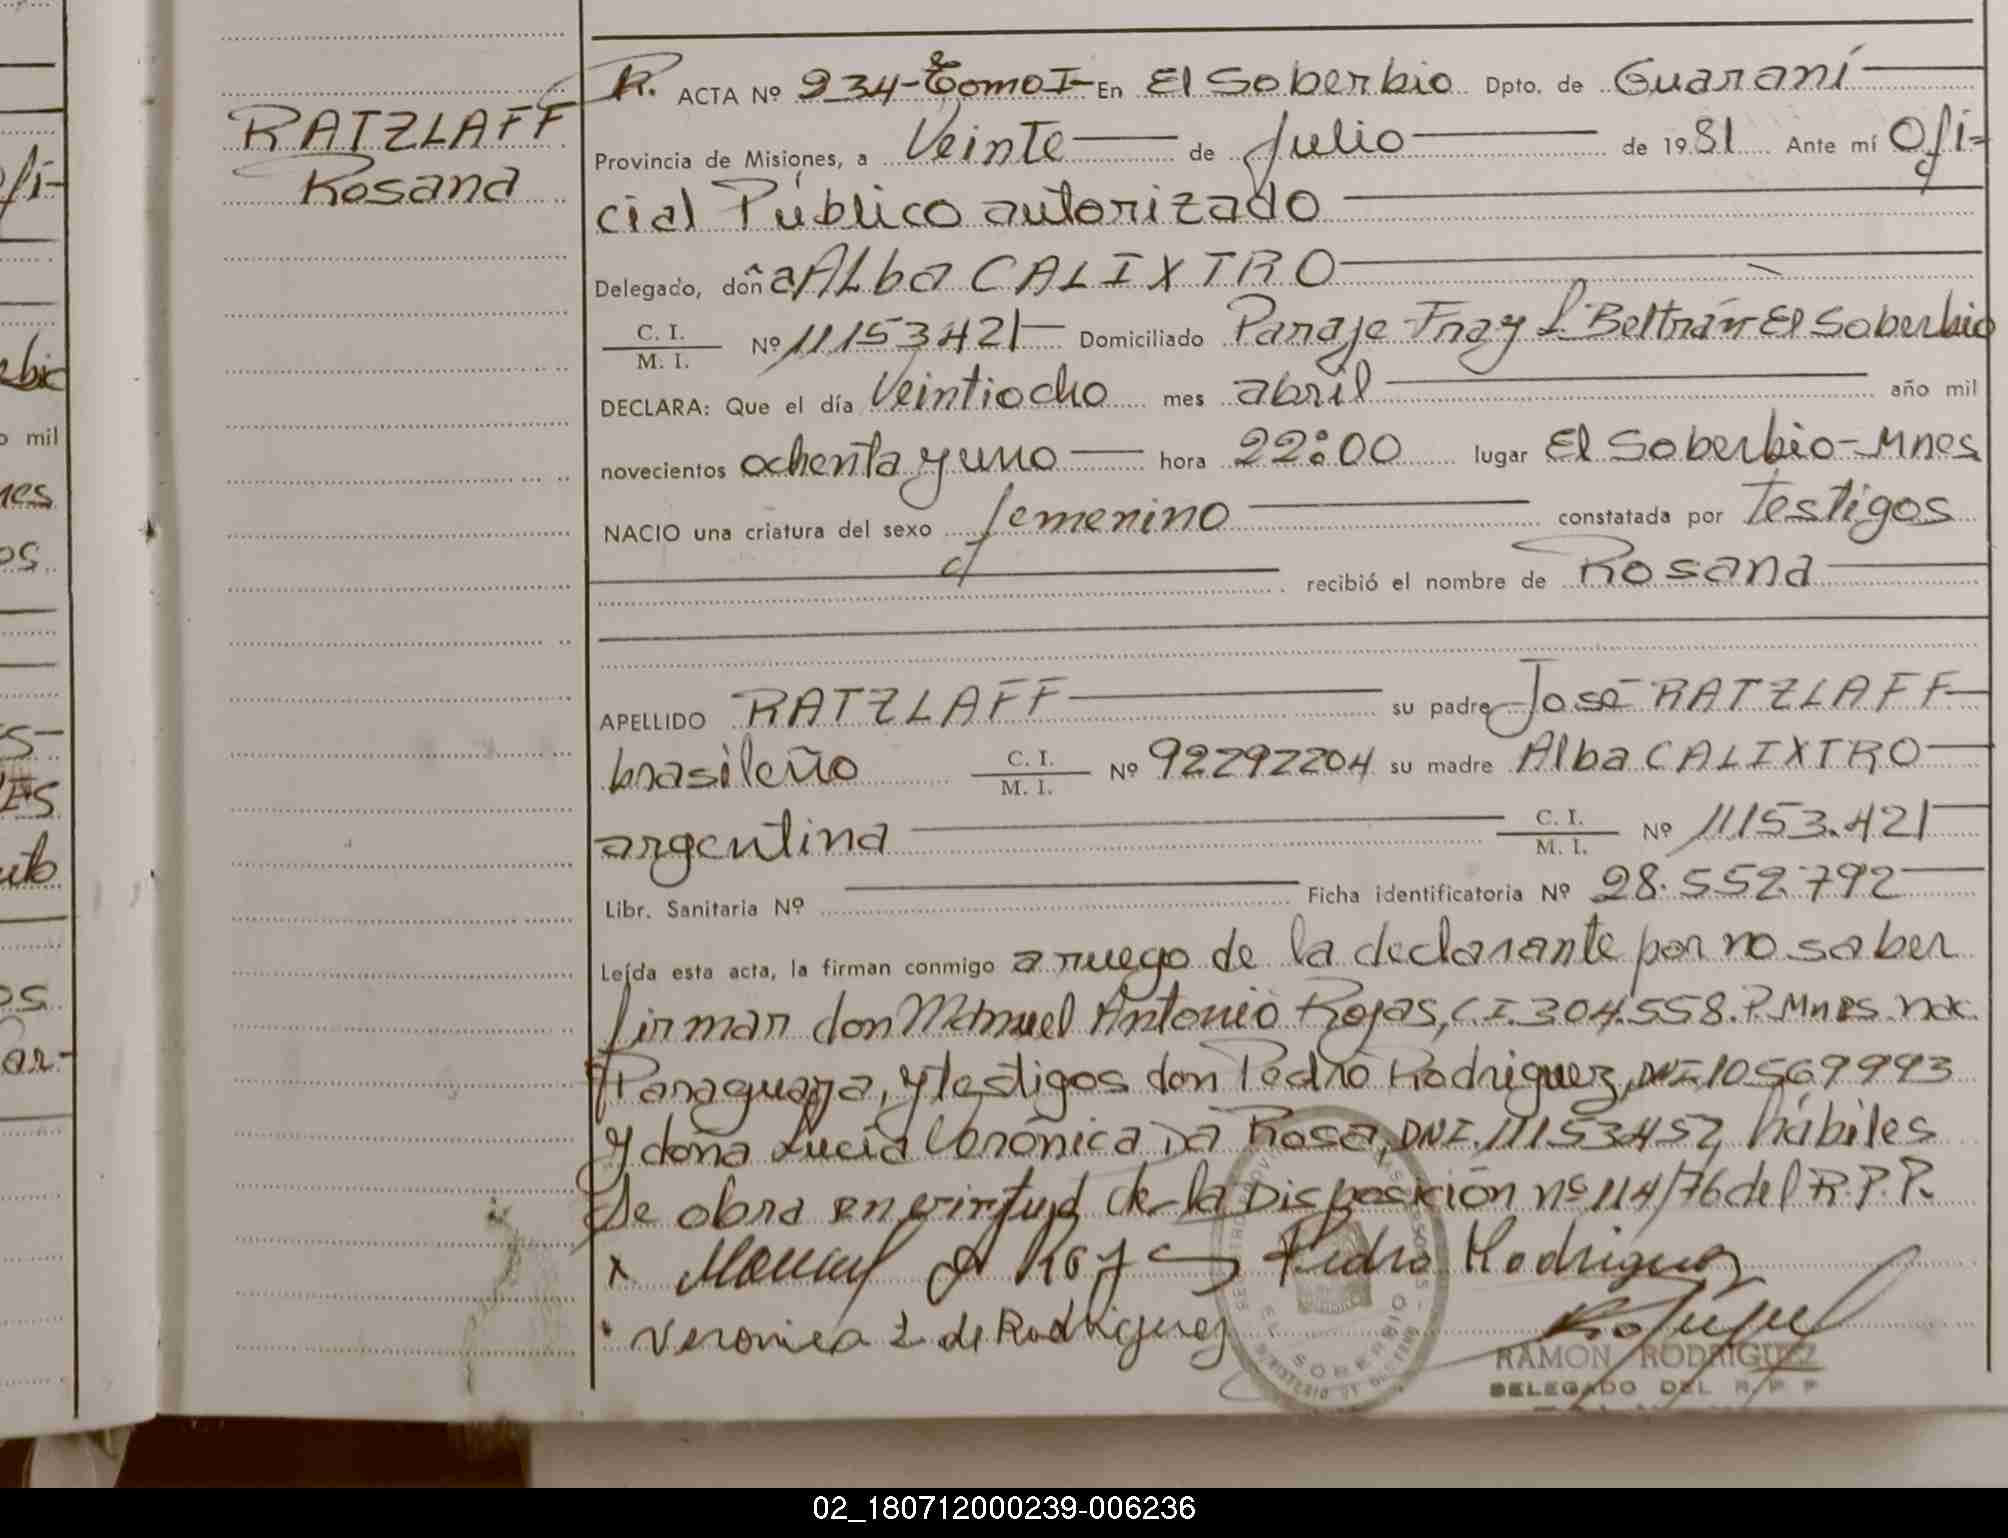 RATZLAFF
Rosana
R. ACTA Nº 234-Tomo I- En El Soberbio Dpto. de Guaraní
Provincia de Misiones, a Veinte de Julio de 1981 Ante mí Ofi=
cial Público autorizado
Delegado, doña Alba CALIXTRO
C. I.
M. I. Nº 11153421 Domiciliado Paraje Fray L. Beltrán El Soberbio
DECLARA: Que el día Veintiocho mes abril año mil
novecientos ochenta y uno hora 22:00 lugar El Soberbio-Mnes
NACIO una criatura del sexo femenino constatada por testigos
recibió el nombre de Rosana
APELLIDO RATZLAFF su padre José RATZLAFF
brasileño C. I. M. I. Nº 92292204 su madre Alba CALIXTRO
argentina C. I. M. I. Nº 11153.421
Libr. Sanitaria Nº Ficha identificatoria Nº 28.552.792
Leída esta acta, la firman conmigo a ruego de la declarante por no saber
firmar don Manuel Antonio Rojas, C.I. 304.558. P. Mnes. nac.
Paraguaya, y testigos don Pedro Rodriguez, DNI 10569993
y doña Lucía Verónica Da Rosa, DNI. 11153457, hábiles
de obra en virtud de la Disposición nº 114/76 del R.P.P.
x Manuel A Rojas Pedro Rodriguez
Veronica L de Rodriguez
EL SOBERBIO
RAMON RODRIGUEZ
DELEGADO DEL R. P. P.
ofi-
ebio
o mil
nes
os
s-
es
os
ar-
02_180712000239-006236